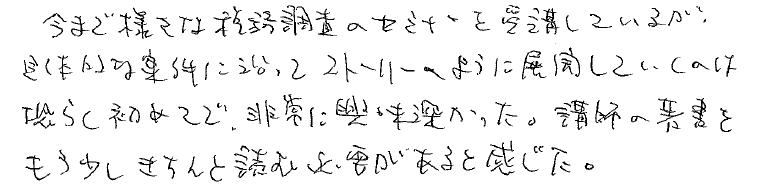 今まで様々な税務調査のセミナーを受講しているが、
具体的な事件に沿ってストーリーのように展開していくのは
恐らく初めてで、非常に興味深かった。講師の著書を
もう少しきちんと読む必要があると感じた。